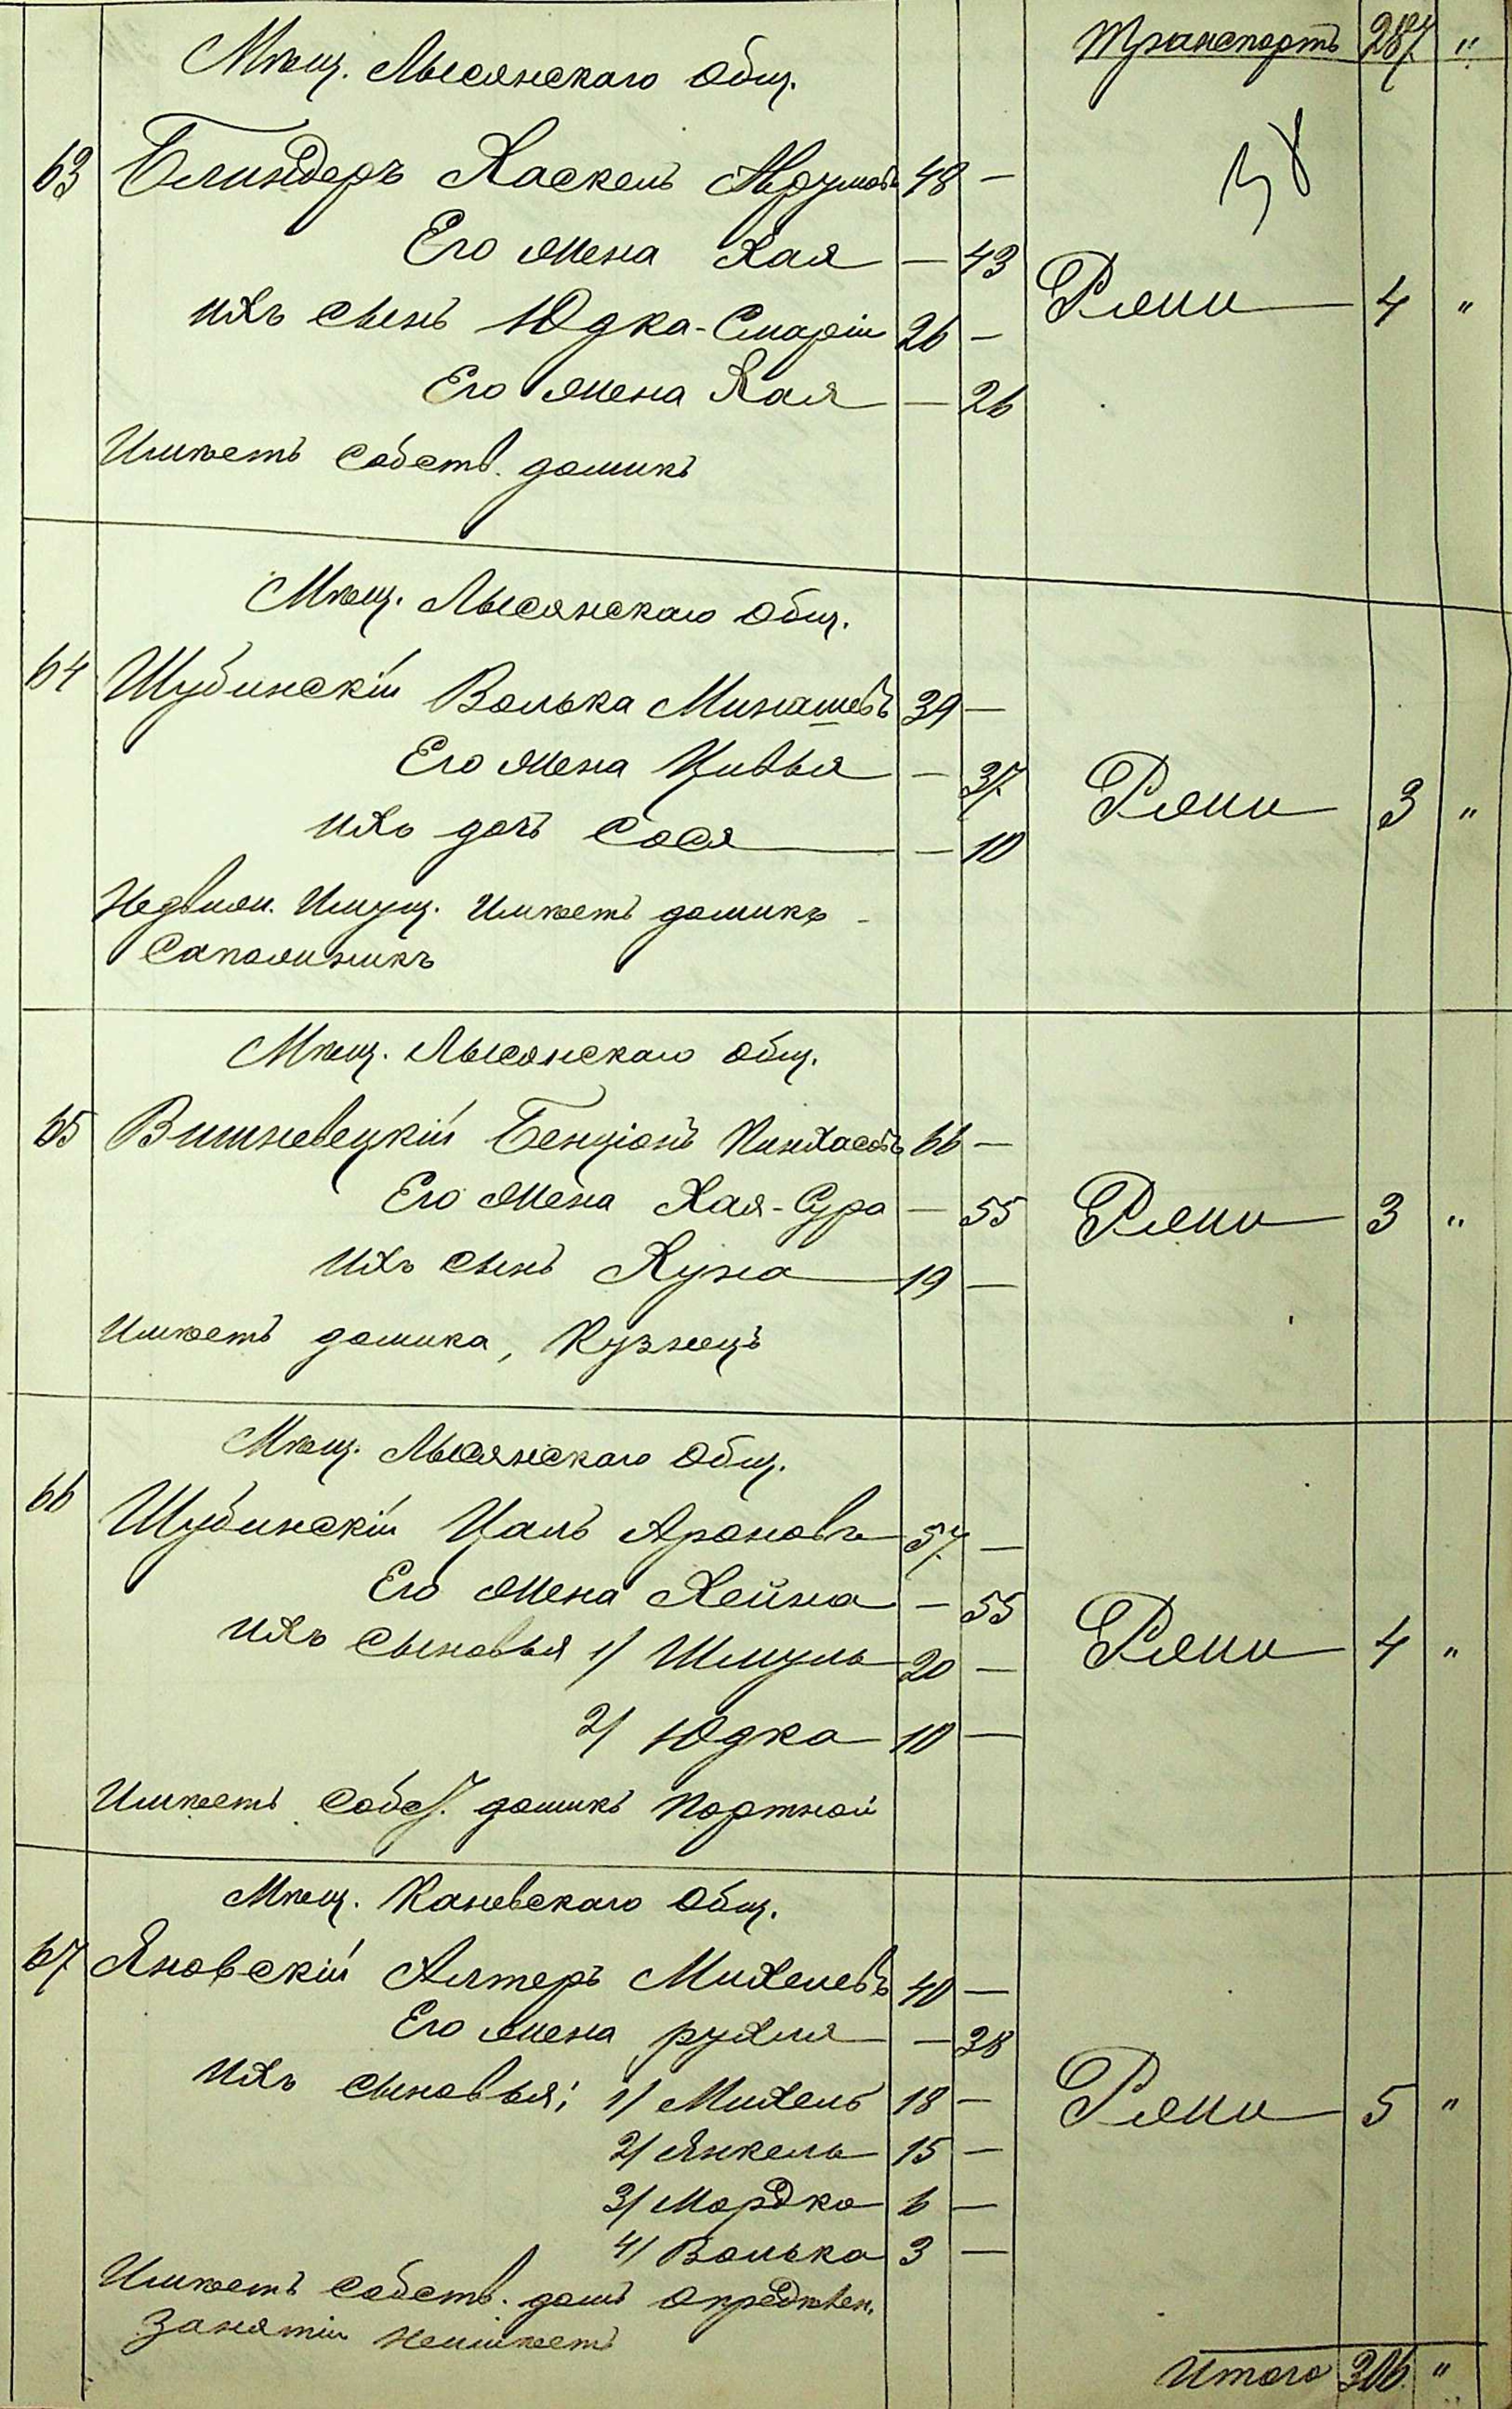 Транспортъ 287 "
Мѣщ. Лысянскаго Общ.
63 Блиндеръ Хаскель Мрумовъ 48 —
Его жена Хая — 43
ихъ сынъ Юдка-Смарій 26 — Ряпи 4 "
Его жена Хая — 26
Имѣетъ собств. домикъ
Мѣщ. Лысянскаго Общ.
64 Шубинскій Волька Минашевъ 39 —
Его жена Цивья — 37
ихъ дочь Сося — 10 3 "
Недвиж. Имущ. Имѣетъ домикъ -
Сапожникъ
Мѣщ. Лысянскаго Общ.
65 Вишневецкій Бенціонъ Пинхасовъ 66 —
Его жена Хая-Сура — 55 3 "
Ихъ сынъ Куна 19 —
Имѣетъ домика, Кузнецъ
Мѣщ. Лысянскаго Общ.
66 Шубинскій Цаль Ароновъ 57 —
Его жена Хейна — 55
Ихъ сыновья 1/ Шмуль 20 — 4 "
2/ Юдка 10 —
Имѣетъ собст. домикъ Портной
Мѣщ. Каневскаго Общ.
67 Яновскій Алтеръ Михелевъ 40 —
Его жена рухля — 38
Ихъ сыновья: 1/ Михель 18 — 5 "
2/ Янкель 15 —
3/ Мордко 6 —
4/ Волько 3 —
Имѣетъ собств. домъ Опредѣлен.
Занятій неимѣетъ
Итого 306 "